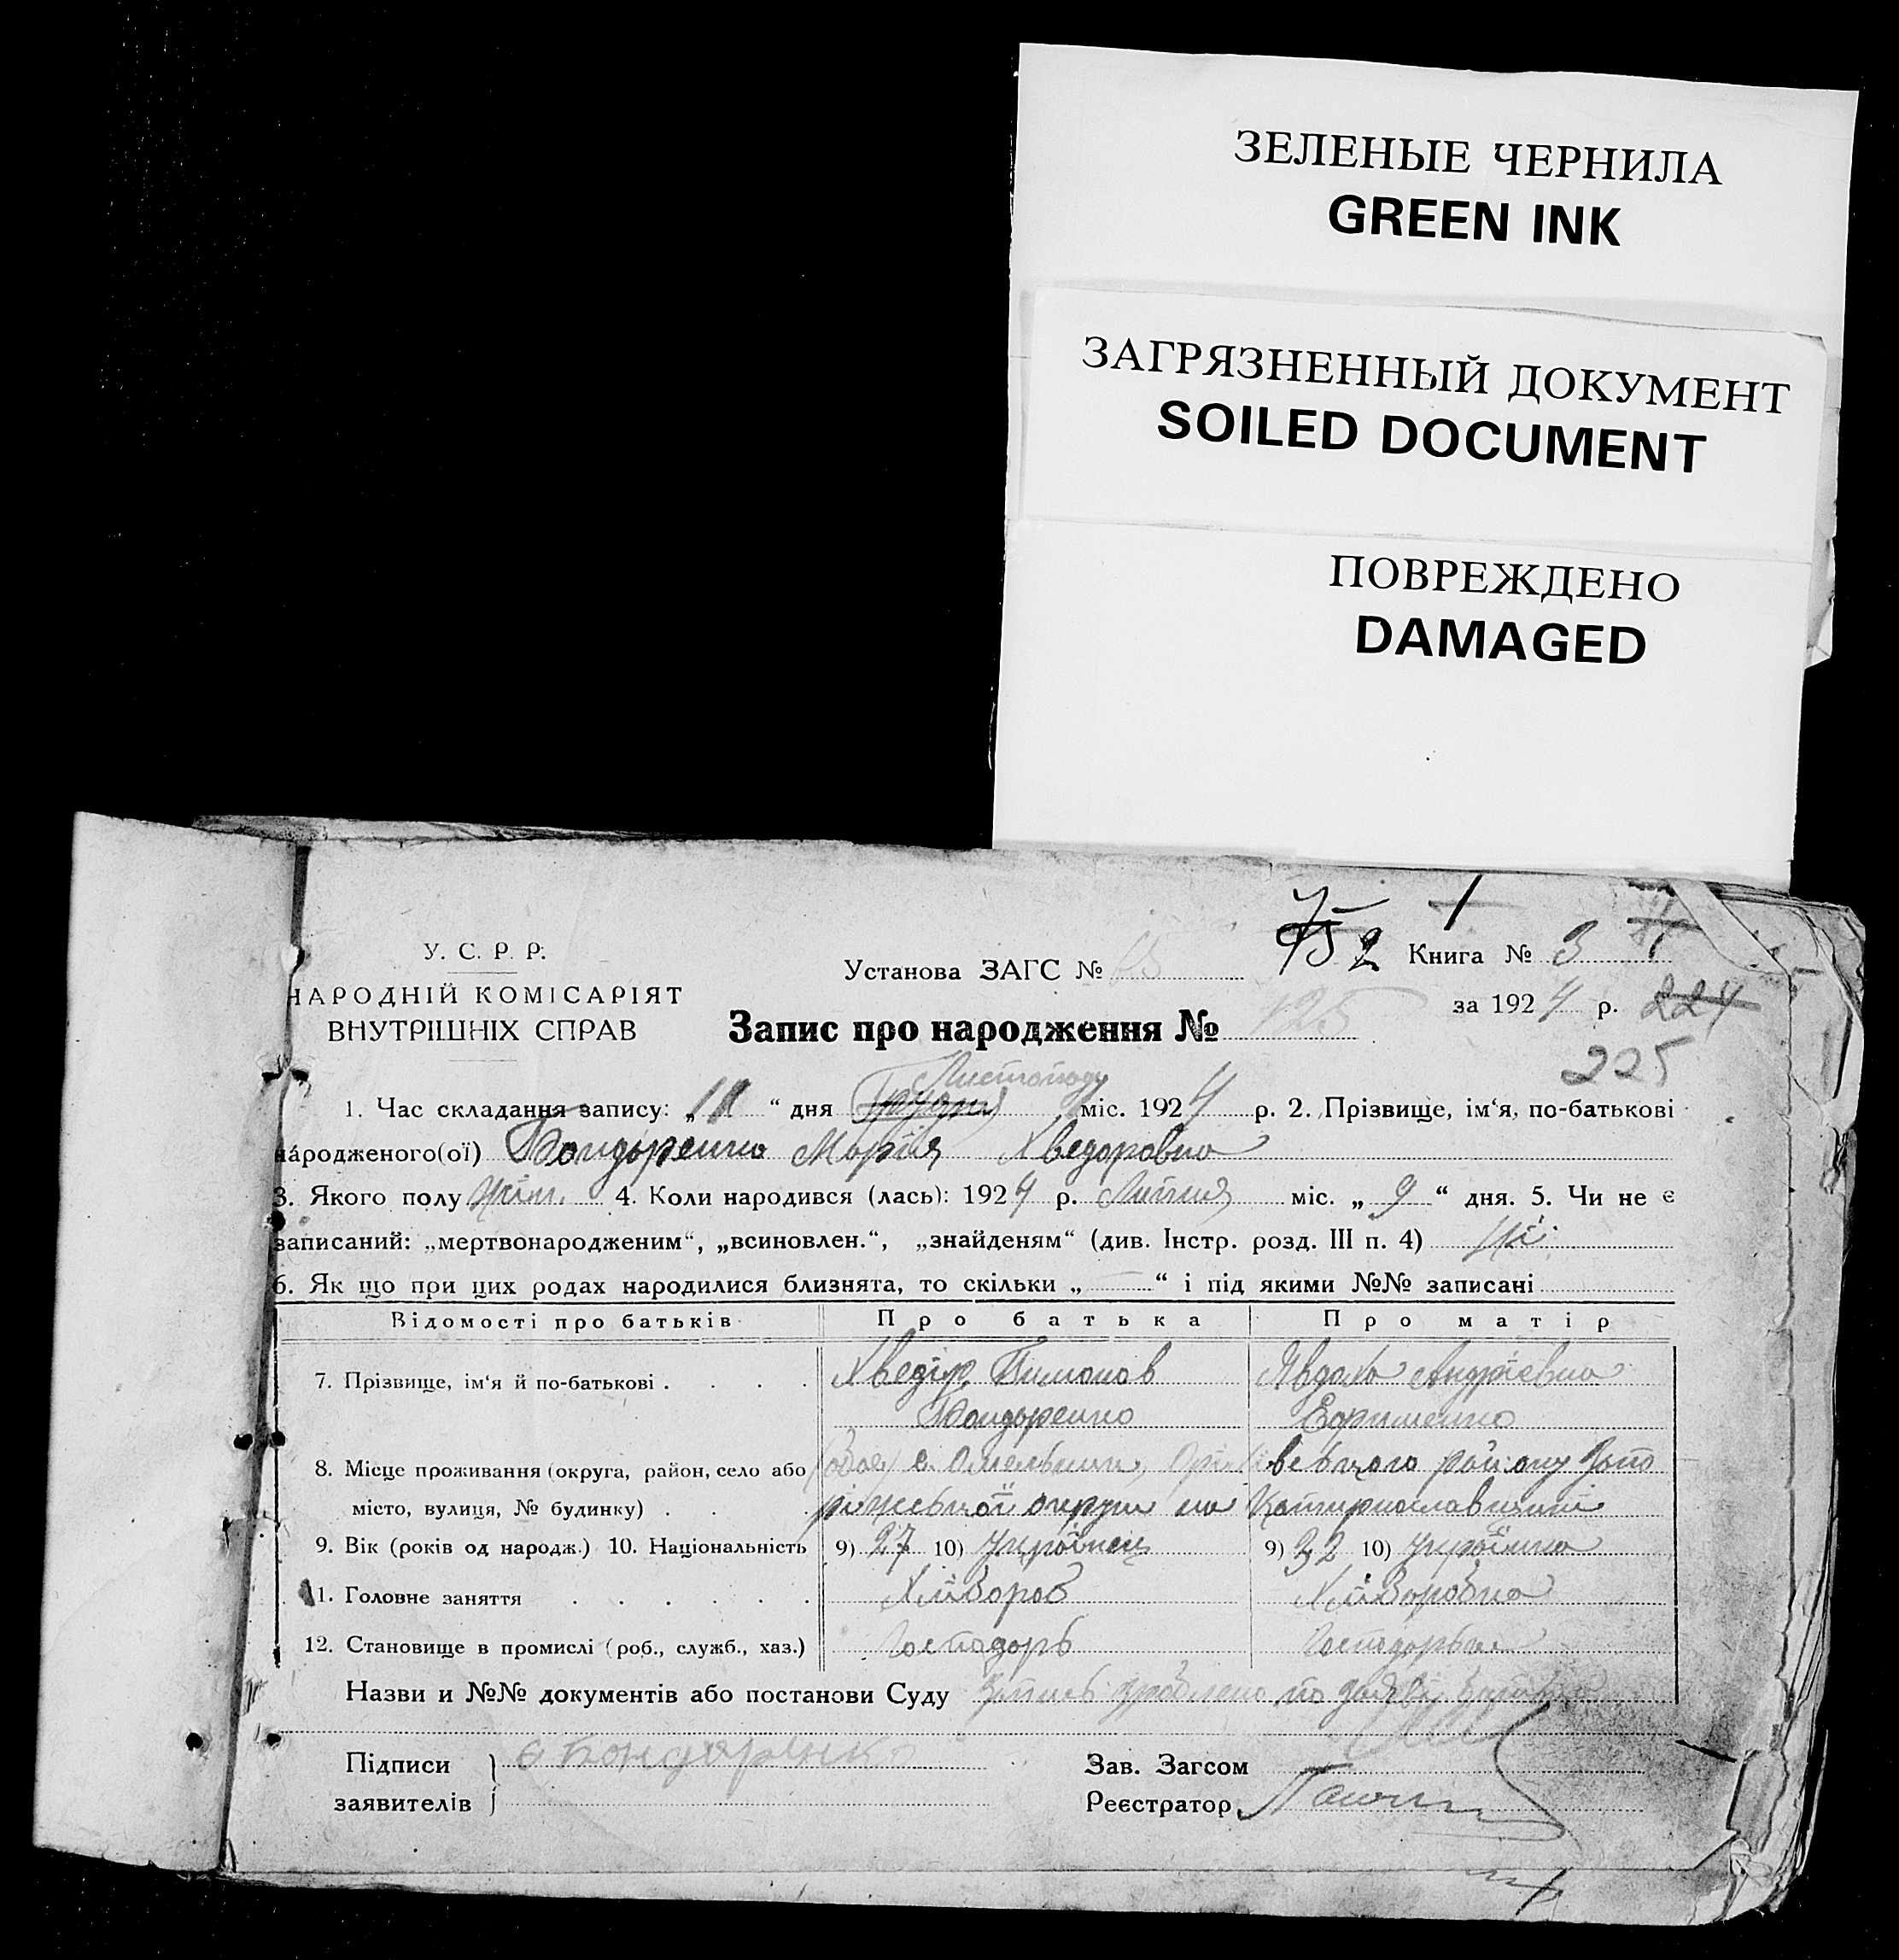 ЗЕЛЕНЫЕ ЧЕРНИЛА
GREEN INK
ЗАГРЯЗНЕННЫЙ ДОКУМЕНТ
SOILED DOCUMENT
ПОВРЕЖДЕНО
DAMAGED
У. С. Р. Р.
НАРОДНІЙ КОМІСАРІЯТ
ВНУТРІШНІХ СПРАВ
Установа ЗАГС №
Книга № 3
за 1924 р. 224
225
Запис про народження № 125
Листопаду
1. Час складання запису: „11“ дня Грудня міс. 1924 р. 2. Прізвище, ім‘я, по-батькові
народженого(ої) Бондаренко Марія Хведоровна
3. Якого полу жін. 4. Коли народився (лась): 1924 р. Липня міс. „9“ дня. 5. Чи не є
записаний: „мертвонародженим“, „всиновлен.“, „знайденям“ (див. Інстр. розд. III п. 4) Ні
6. Як що при цих родах народилися близнята, то скільки „—“ і під якими №№ записані
Відомості про батьків Про батька Про матір
7. Прізвище, ім‘я й по-батькові . . . . Хведір Бондаренко Явдоха Андріевна
8. Місце проживання (округа, район, село або с. Омельник, Оріхівського району Запо
місто, вулиця, № будинку) . . . ріжської округи на Катиринославщині
9. Вік (років од народж.) 10. Національність 9) 27 10) Українец 9) 32 10) Українка
11. Головне заняття . . . . . . Хлібороб Хліборобка
12. Становище в промислі (роб., служб., хаз.) Господарь Господарька
Назви и №№ документів або постанови Суду Запись зроблено по заяві
Підписи Бондаренко Зав. Загсом
заявителів Реєстратор